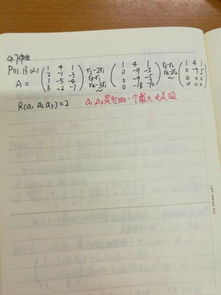 P111.13(2)
A= (1 4 1 / 2 -1 -3 / 1 -5 -4 / 3 -6 -7) r₂-2r₁ r₃-r₁ r₄-3r₁ ~ (1 4 1 / 0 -9 -5 / 0 -9 -5 / 0 -18 -10) r₃-r₂ r₄-2r₂ ~ (1 4 1 / 0 -9 5 / 0 0 0 / 0 0 0)
R(a₁ a₂ a₃)=2 a₁ a₂是它的一个最大无关组